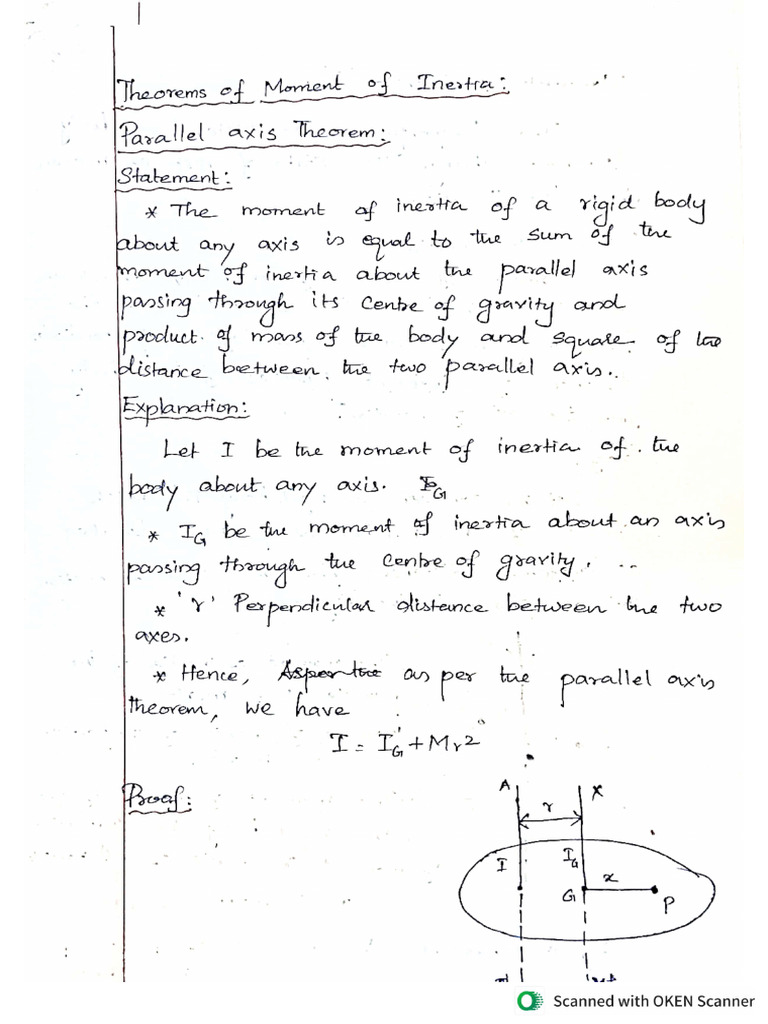 Theorems of Moment of Inertia:
Parallel axis Theorem:
Statement:
* The moment of inertia of a rigid body
about any axis is equal to the sum of the
moment of inertia about the parallel axis
passing through its centre of gravity and
product of mass of the body and square of
distance between the two parallel axis.
Explanation:
Let I be the moment of inertia of the
body about any axis. I_G
* I_G be the moment of inertia about an axis
passing through the centre of gravity.
* 'r' Perpendicular distance between the two
axes.
* Hence, As per the as per the parallel axis
theorem, we have
I = I_G + Mr2
Proof:
A
r
I I_G
G x P
Scanned with OKEN Scanner